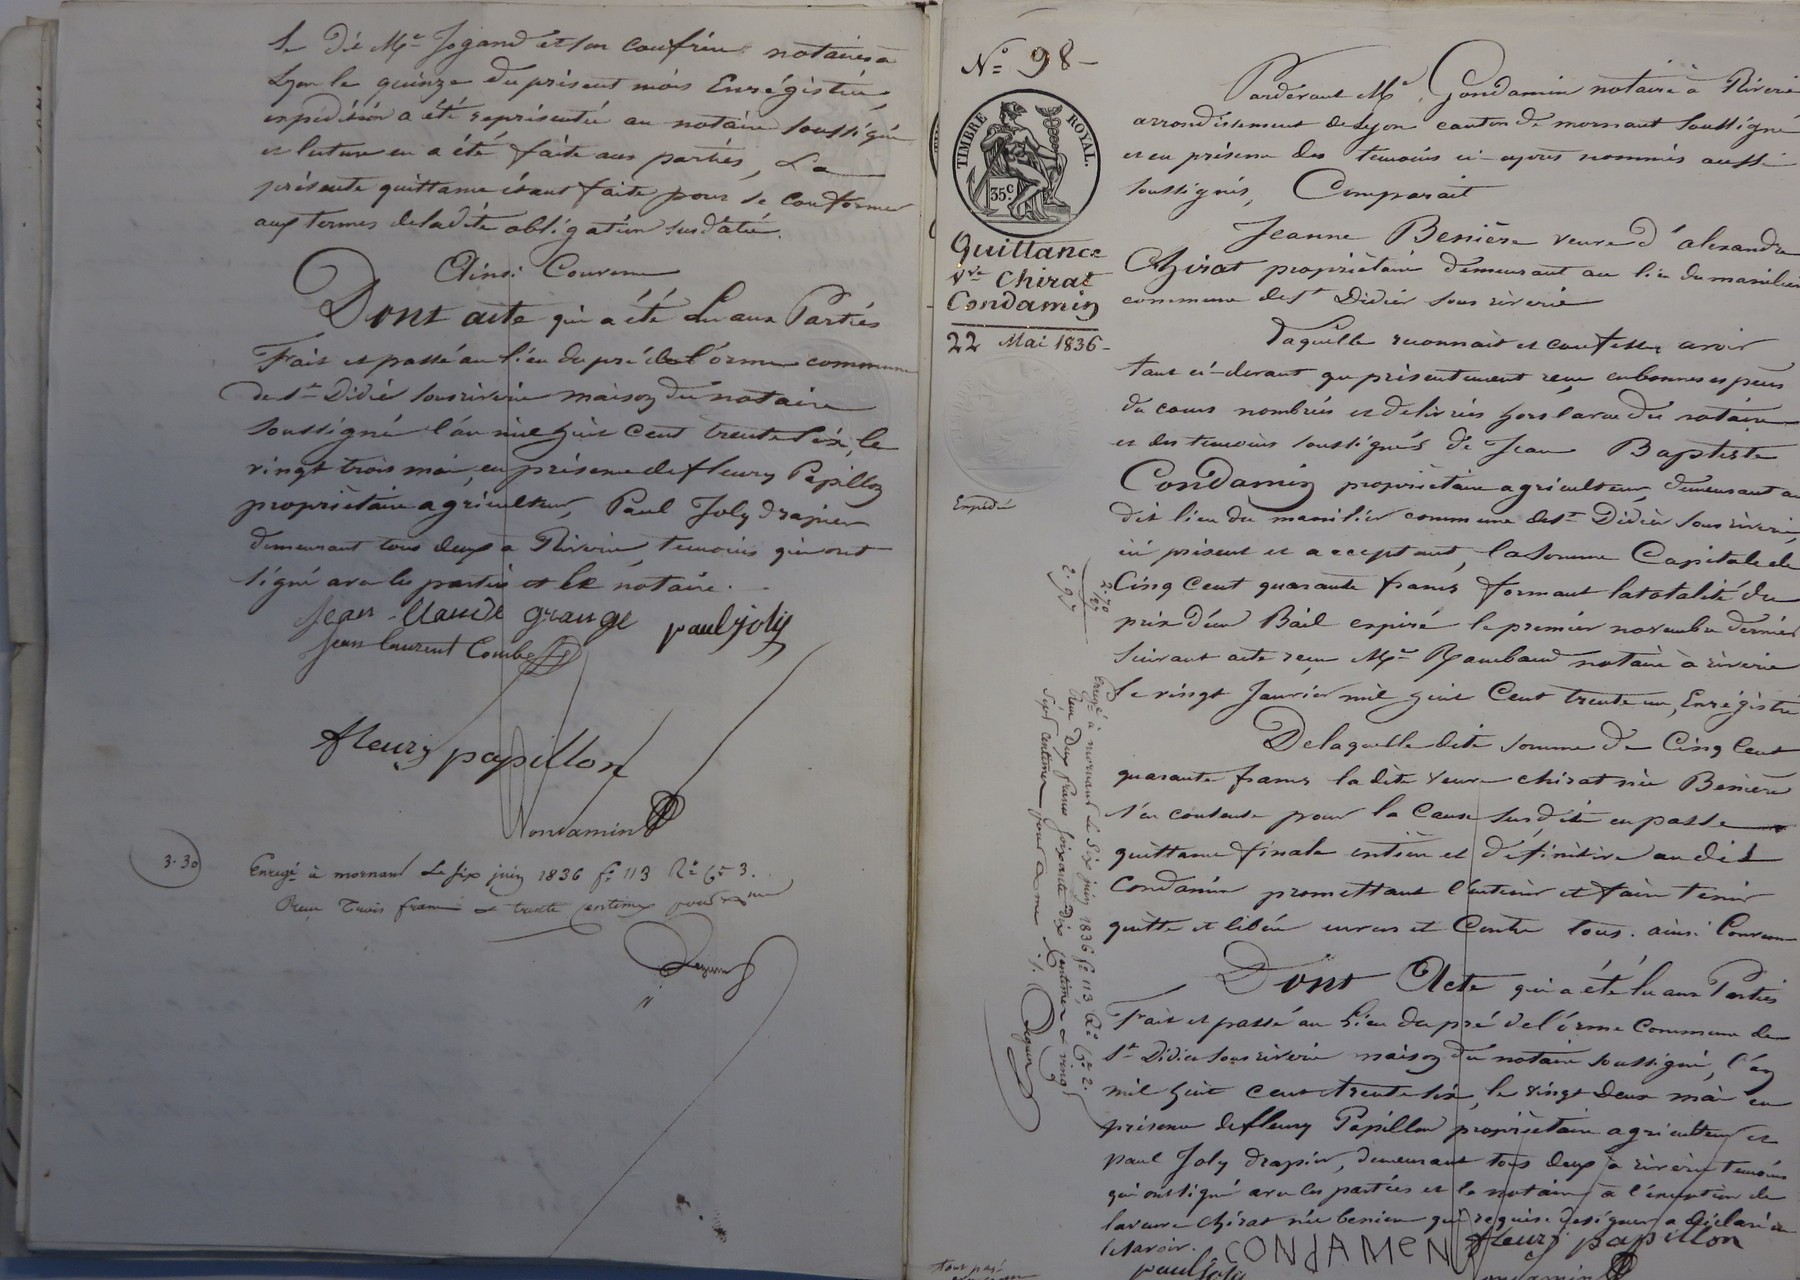 le dit Me Jogand et son confrère notaires à
Lyon le quinze du présent mois Enrégistrée,
expédition a été représentée au notaire soussigné
et lecture en a été faite aux parties, La
présente quittance étant faite pour se conformer
aux termes de la dite obligation susdatée.
Ainsi Convenu
Dont acte qui a été Lu aux Parties
Fait et passé au lieu du pré de l'orme commune
de St Didier sous riverie maison du notaire
soussigné l'an mil huit cent trente six, le
vingt trois mai, en présence de fleury Papillon
propriétaire agriculteur, Paul Joly drapier
demeurant tous deux à Riverie, temoins qui ont
signé avec les parties et le notaire.
jean-Claude grange pauljoly
jean laurent Combe
fleury papillon
Condamin
3.30
Enregé à mornant Le six juin 1836 fo 113 Ro Cse 3.
Reçu Trois francs et trente Centimes pour
No 98-
TIMBRE ROYAL.
35c
Quittance
Vve Chirat
Condamin
22 Mai 1836-
Expédié
2.70
27
2.97
Enregé à mornant Le Six juin 1836 fo 113, Ro Cse 2.
Reçu Deux francs soixante dix Centimes et vingt
Sept centimes pour
Pardevant Me Condamin notaire à Riverie
arrondissement de Lyon canton de mornant soussigné
et en présence des temoins ci-après nommés aussi
soussignés, Comparait
Jeanne Benière veuve d'alexandre
Chirat propriétaire demeurant au lieu du manilier
commune de St Didier sous riverie
Laquelle reconnait et confesse avoir
tant ci-devant que présentement reçu en bonnes espèces
du cours nombrées et delivrées hors la vue du notaire
et des temoins soussignés de Jean Baptiste
Condamin propriétaire agriculteur, demeurant au
dit lieu du manilier commune de St Didier sous riverie,
ici présent et acceptant, la somme Capitale de
Cinq Cent quarante francs, formant la totalité du
prix d'un Bail expiré le premier novembre dernier
suivant acte reçu Me Rambaud notaire à riverie
le vingt Janvier mil huit Cent trente un, Enrégistré
De laquelle dite somme de Cinq Cent
quarante francs la dite veuve chirat née Benière
s'en contente pour la cause susdite en passe
quittance finale entière et définitive au dit
Condamin promettant l'entenir et faire tenir
quitte et libéré envers et Contre tous. ainsi Convenu
Dont Acte qui a été lu aux Parties
Fait et passé au Lieu du pré de l'orme Commune de
St Didier sous riverie maison du notaire soussigné, l'an
mil huit cent trente six, le vingt deux mai en
présence de fleury Papillon propriétaire agriculteur et
paul Joly drapier, demeurant tous deux à riverie temoins
qui ont signé avec les parties et le notaire à l'exception de
la veuve chirat née benière qui requise de signer a déclaré ne
le savoir.
CONdAMeN fleury papillon
pauljoly
Condamin